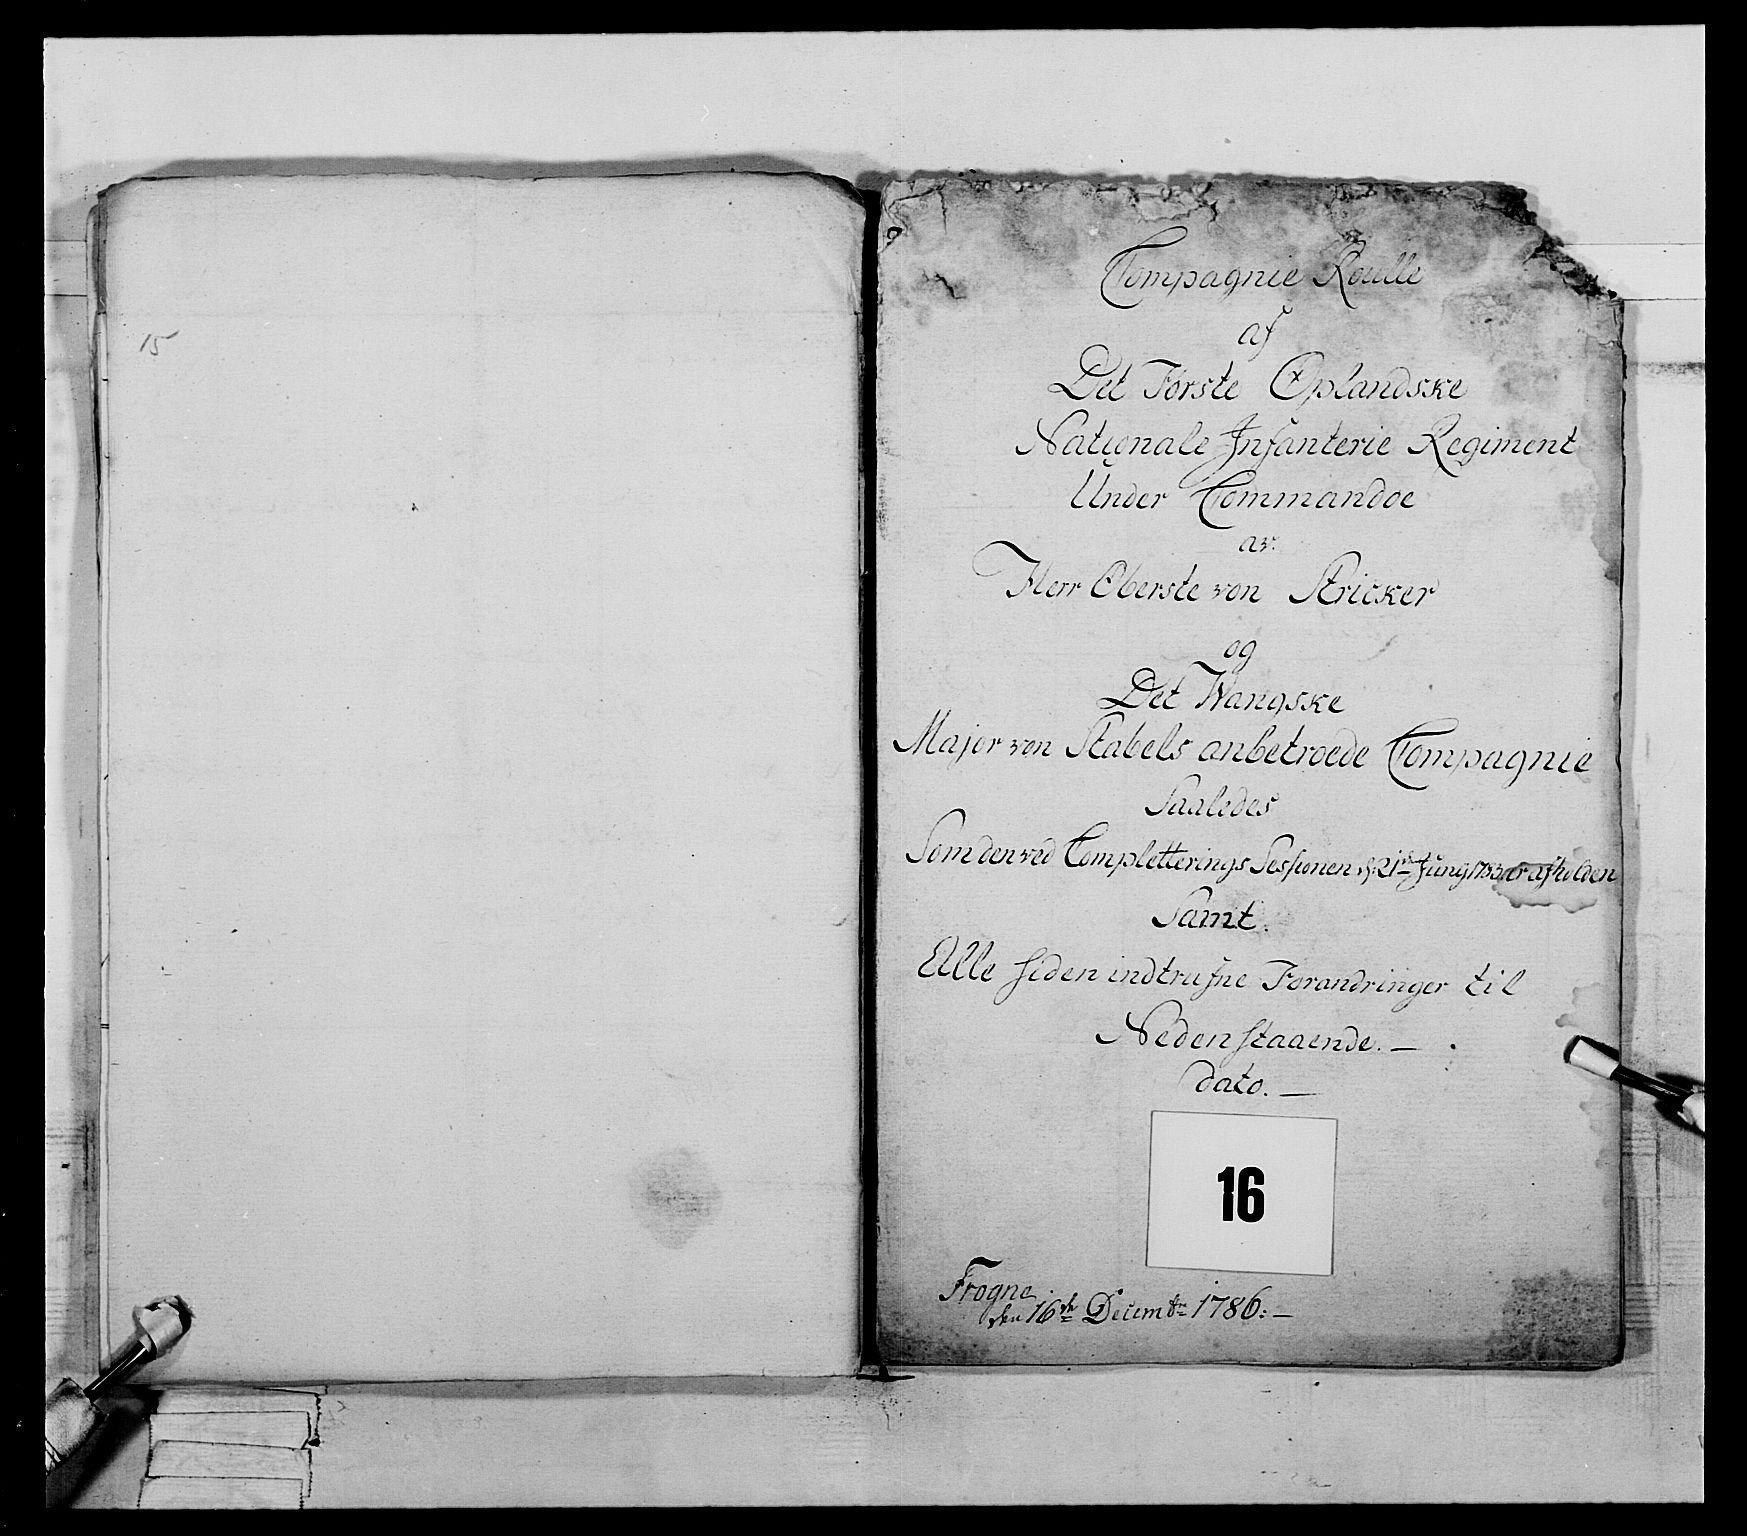 15
Compagnie Roulle
af
Det Förste Oplandske
Nationale Infanterie Regiment
Under Commandoe
av
Herr Oberste von Stricker
og
Det Wangske
Major von Stabels anbetroede Compagnie
Saaledes
Som den ved Completterings Sessionen d: 21de Juny er afholden
Samt.
Alle siden indtrufne Forandringer til
Nedenstaaende. —
dato. —
16
Frogne.
den 16de Decembr 1786: —